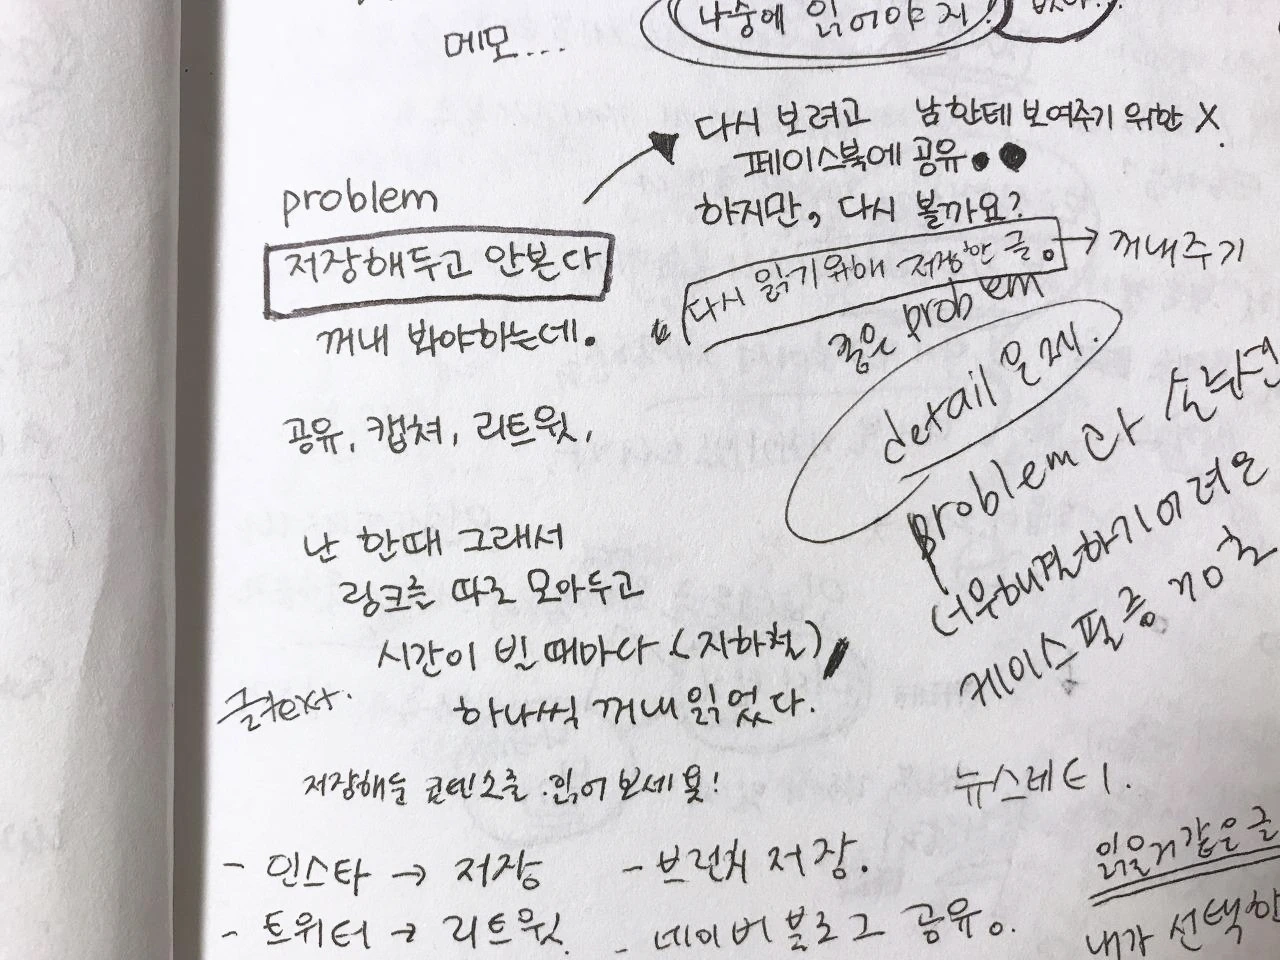 메모...
나중에 읽어야지.
다시 보려고 남한테 보여주기 위한 X.
페이스북에 공유
하지만, 다시 볼까요?
problem
저장해두고 안본다
꺼내 봐야하는데.
다시 읽기위해 저장한 글. → 꺼내주기
좁은 problem
detail 문제.
공유, 캡쳐, 리트윗,
problem
더 우해결하기 어려운
케이스
난 한때 그래서
링크를 따로 모아두고
시간이 빌 때마다 (지하철)
하나씩 꺼내 읽었다.
글 text.
저장해둔 콘텐츠를 읽어 보세욧!
뉴스레터.
- 인스타 → 저장
- 트위터 → 리트윗
- 브런치 저장.
- 네이버 블로그 공유.
읽을거 같은 글
내가 선택한